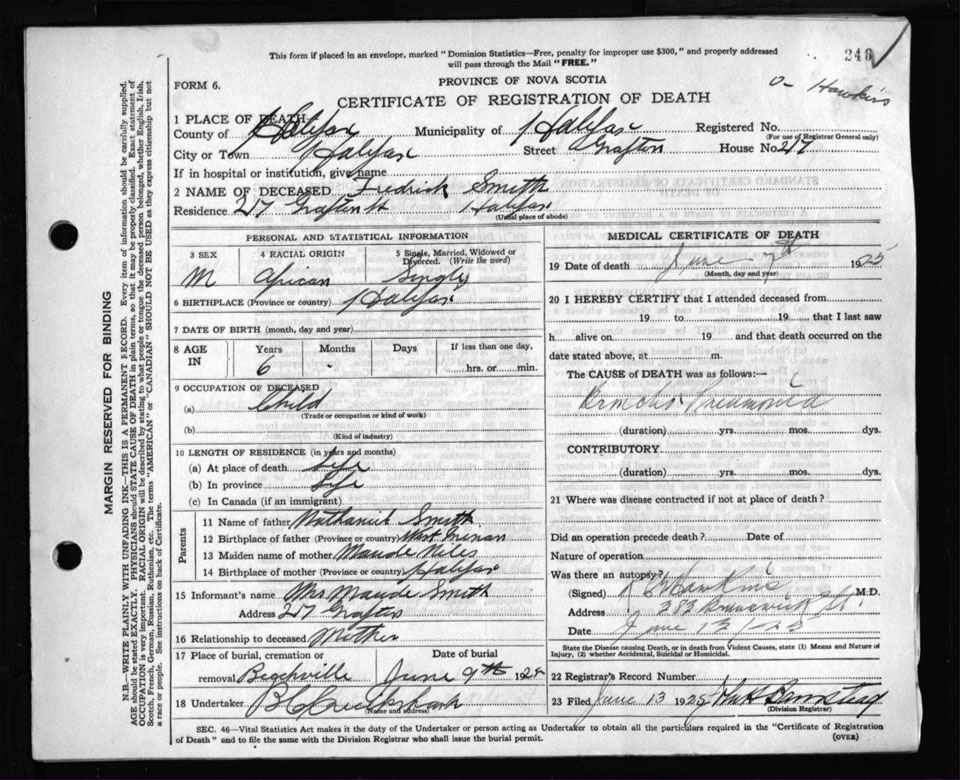 This form if placed in an envelope, marked "Dominion Statistics—Free, penalty for improper use $300," and properly addressed
will pass through the Mail "FREE."
246
FORM 6.
PROVINCE OF NOVA SCOTIA
O- Hawkins
CERTIFICATE OF REGISTRATION OF DEATH
1 PLACE OF DEATH
County of Halifax Municipality of Halifax Registered No.
(For use of Registrar General only)
City or Town Halifax Street Grafton House No. 217
If in hospital or institution, give name
2 NAME OF DECEASED Fredrick Smith
Residence 217 Grafton St Halifax
(Usual place of abode)
PERSONAL AND STATISTICAL INFORMATION
3 SEX 4 RACIAL ORIGIN 5 Single, Married, Widowed or Divorced. (Write the word)
M African Single
6 BIRTHPLACE (Province or country) Halifax
7 DATE OF BIRTH (month, day and year)
8 AGE IN Years Months Days If less than one day,
6 - hrs. or min.
9 OCCUPATION OF DECEASED
(a) Child
(Trade or occupation or kind of work)
(b)
(Kind of industry)
10 LENGTH OF RESIDENCE (in years and months)
(a) At place of death life
(b) In province Life
(c) In Canada (if an immigrant)
Parents
11 Name of father Nathaniel Smith
12 Birthplace of father (Province or country) West
13 Maiden name of mother Maude Niles
14 Birthplace of mother (Province or country) Halifax
15 Informant's name Mrs Maude Smith
Address 217 Grafton
16 Relationship to deceased Mother
17 Place of burial, cremation or removal Date of burial
Beechville June 9th 1925
18 Undertaker B C Cruikshank
(Name and address)
MEDICAL CERTIFICATE OF DEATH
19 Date of death June 7th 1925
(Month, day and year)
20 I HEREBY CERTIFY that I attended deceased from
19 to 19 that I last saw
h alive on 19 and that death occurred on the
date stated above, at m.
The CAUSE of DEATH was as follows:—
Broncho Pneumonia
(duration) yrs. mos. dys.
CONTRIBUTORY
(duration) yrs. mos. dys.
21 Where was disease contracted if not at place of death?
Did an operation precede death? Date of
Nature of operation
Was there an autopsy?
(Signed) Hawkins M.D.
Address 283 Brunswick St.
Date June 13/25
State the Disease causing Death, or in death from Violent Causes, state (1) Means and Nature of
Injury, (2) whether Accidental, Suicidal or Homicidal.
22 Registrar's Record Number
23 Filed June 13 1925 John A Barnstead
(Division Registrar)
SEC. 46—Vital Statistics Act makes it the duty of the Undertaker or person acting as Undertaker to obtain all the particulars required in the "Certificate of Registration
of Death" and to file the same with the Division Registrar who shall issue the burial permit.
(OVER)
MARGIN RESERVED FOR BINDING
N.B.—WRITE PLAINLY WITH UNFADING INK—THIS IS A PERMANENT RECORD. Every item of information should be carefully supplied.
AGE should be stated EXACTLY. PHYSICIANS should STATE CAUSE OF DEATH in plain terms, so that it may be properly classified. Exact statement of
OCCUPATION is very important. RACIAL ORIGIN will be described by stating to what people or tongue the deceased person belonged, whether English, Irish,
Scotch, French, German, Russian, Ruthenian, etc. The terms "AMERICAN" or "CANADIAN" SHOULD NOT BE USED as they express citizenship but not
a race or people. See instructions on back of Certificate.